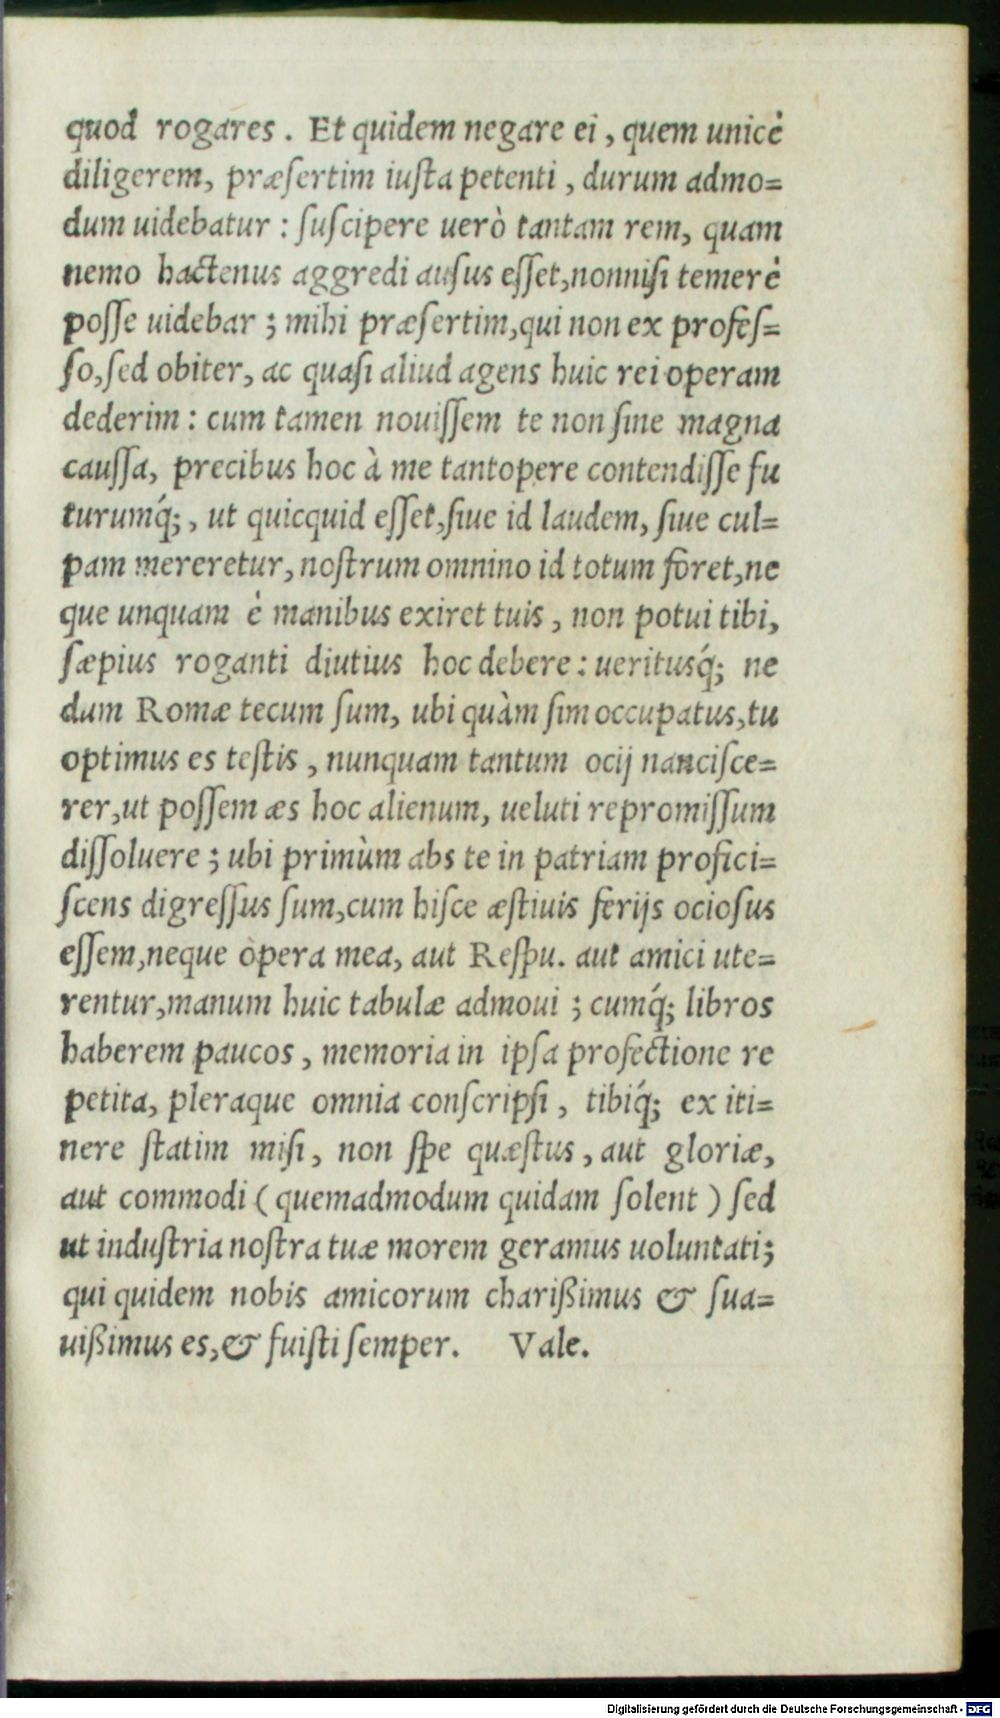 quod rogares. Et quidem negare ei, quem unicè
diligerem, præſertim iuſta petenti, durum admo=
dum uidebatur: ſuſcipere uerò tantam rem, quam
nemo hactenus aggredi auſus eſſet, nonniſi temerè
poſſe uidebar; mihi præſertim, qui non ex profeſ=
ſo, ſed obiter, ac quaſi aliud agens huic rei operam
dederim: cum tamen nouiſſem te non ſine magna
cauſſa, precibus hoc à me tantopere contendiſſe fu
turumq́;, ut quicquid eſſet, ſiue id laudem, ſiue cul=
pam mereretur, noſtrum omnino id totum foret, ne
que unquam è manibus exiret tuis, non potui tibi,
ſæpius roganti diutius hoc debere: ueritusq́; ne
dum Romæ tecum ſum, ubi quàm ſim occupatus, tu
optimus es teſtis, nunquam tantum ocij nanciſce=
rer, ut poſſem æs hoc alienum, ueluti repromiſſum
diſſoluere; ubi primùm abs te in patriam profici=
ſcens digreſſus ſum, cum hiſce æſtiuis ferijs ocioſus
eſſem, neque òpera mea, aut Reſpu. aut amici ute=
rentur, manum huic tabulæ admoui; cumq́; libros
haberem paucos, memoria in ipſa profectione re
petita, pleraque omnia conſcripſi, tibiq́; ex iti=
nere ſtatim miſi, non ſpe quæſtus, aut gloriæ,
aut commodi (quemadmodum quidam ſolent) ſed
ut induſtria noſtra tuæ morem geramus uoluntati;
qui quidem nobis amicorum charißimus & ſua=
uißimus es, & fuiſti ſemper. Vale.
Digitalisierung gefördert durch die Deutsche Forschungsgemeinschaft - DFG